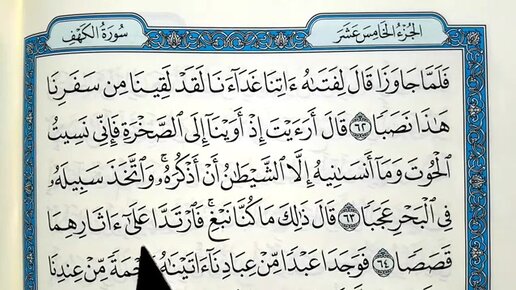 الجزء الخامس عشر
سورة الكهف
فَلَمَّا جَاوَزَا قَالَ لِفَتَىٰهُ ءَاتِنَا غَدَآءَنَا لَقَدْ لَقِينَا مِن سَفَرِنَا
هَٰذَا نَصَبًا ٦٢ قَالَ أَرَءَيْتَ إِذْ أَوَيْنَآ إِلَى ٱلصَّخْرَةِ فَإِنِّي نَسِيتُ
ٱلْحُوتَ وَمَآ أَنسَىٰنِيهُ إِلَّا ٱلشَّيْطَٰنُ أَنْ أَذْكُرَهُۥۚ وَٱتَّخَذَ سَبِيلَهُۥ
فِي ٱلْبَحْرِ عَجَبًا ٦٣ قَالَ ذَٰلِكَ مَا كُنَّا نَبْغِۚ فَٱرْتَدَّا عَلَىٰٓ ءَاثَارِهِمَا
قَصَصًا ٦٤ فَوَجَدَا عَبْدًا مِّنْ عِبَادِنَآ ءَاتَيْنَٰهُ رَحْمَةً مِّنْ عِندِنَا